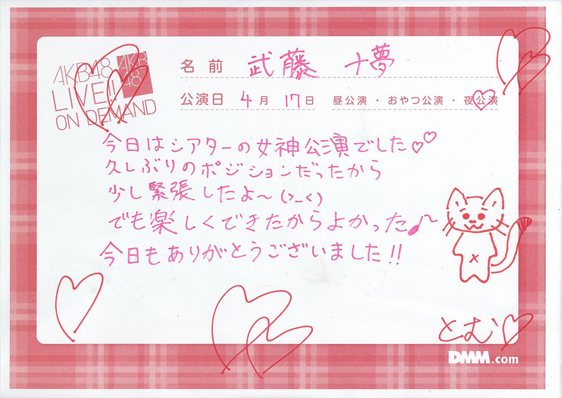 AKB48
LIVE!!
ON DEMAND
AKB
48
名前 武藤 十夢
公演日 4月 17日 昼公演・おやつ公演・夜公演
今日はシアターの女神公演でした♡♡
久しぶりのポジションだったから
少し緊張したよ〜(>_<)
でも楽しくできたからよかった♪〜
今日もありがとうございました!!
とむ♡
DMM.com